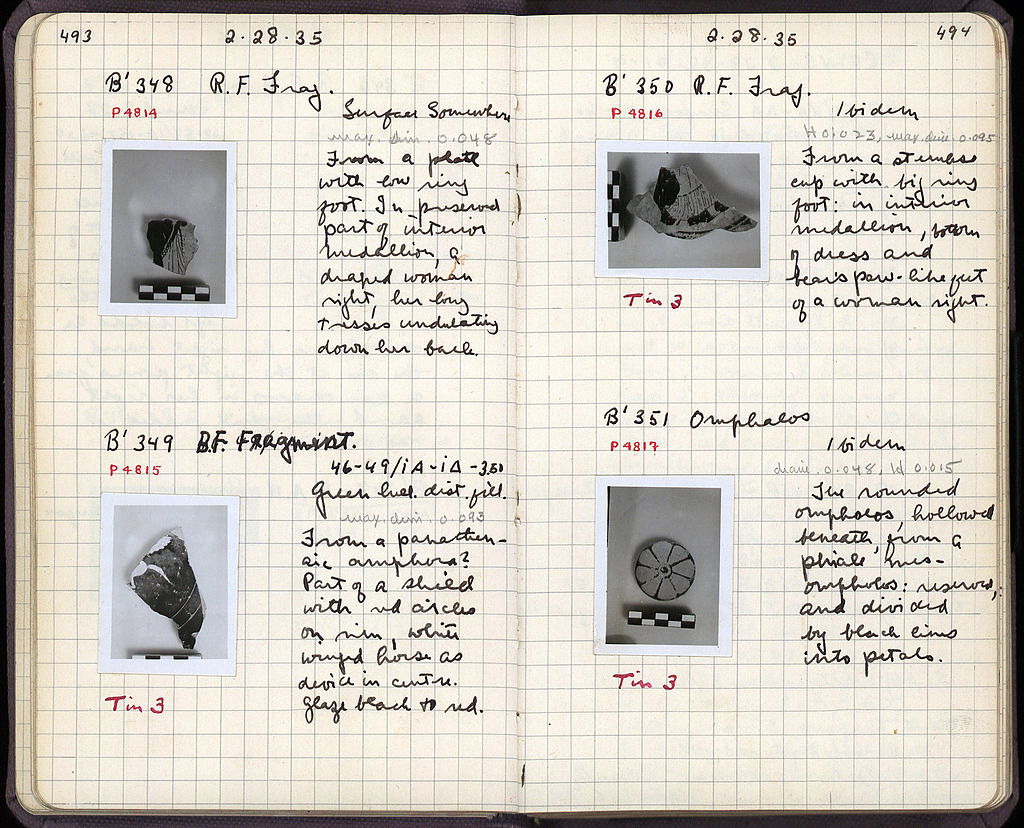 493
2·28·35
B' 348 R.F. Frag.
P 4814
Surface Somewhere
max. dim. 0.048
From a plate
with low ring
foot. In preserved
part of interior
medallion, a
draped woman
right, her long
tresses undulating
down her back.
B' 349 B.F. Fragment.
P 4815
46-49/ΙΑ-ΙΔ -3.50
Green fill.
max. dim. 0.093
From a panathen-
aic amphora?
Part of a shield
with red circles
on rim, white
winged horse as
device in centre.
Glaze black to red.
Tin 3
2·28·35
494
B' 350 R.F. Frag.
P 4816
Ibidem
H 0.023, max. dim. 0.095
From a stemless
cup with big ring
foot: in interior
medallion, bottom
of dress and
bear's paw-like feet
of a woman right.
Tin 3
B' 351 Omphalos
P 4817
Ibidem
diam. 0.048, H 0.015
The rounded
omphalos, hollowed
beneath, from a
phiale mes-
omphalos: reserved,
and divided
by black lines
into petals.
Tin 3